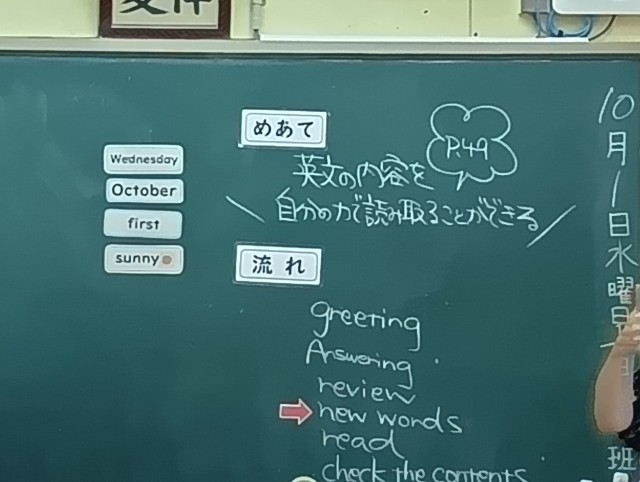 Wednesday
October
first
sunny
めあて
P.49
英文の内容を
自分の力で読み取ることができる
流れ
greeting
Answering
review
new words
read
check the contents
10月1日水曜日
班